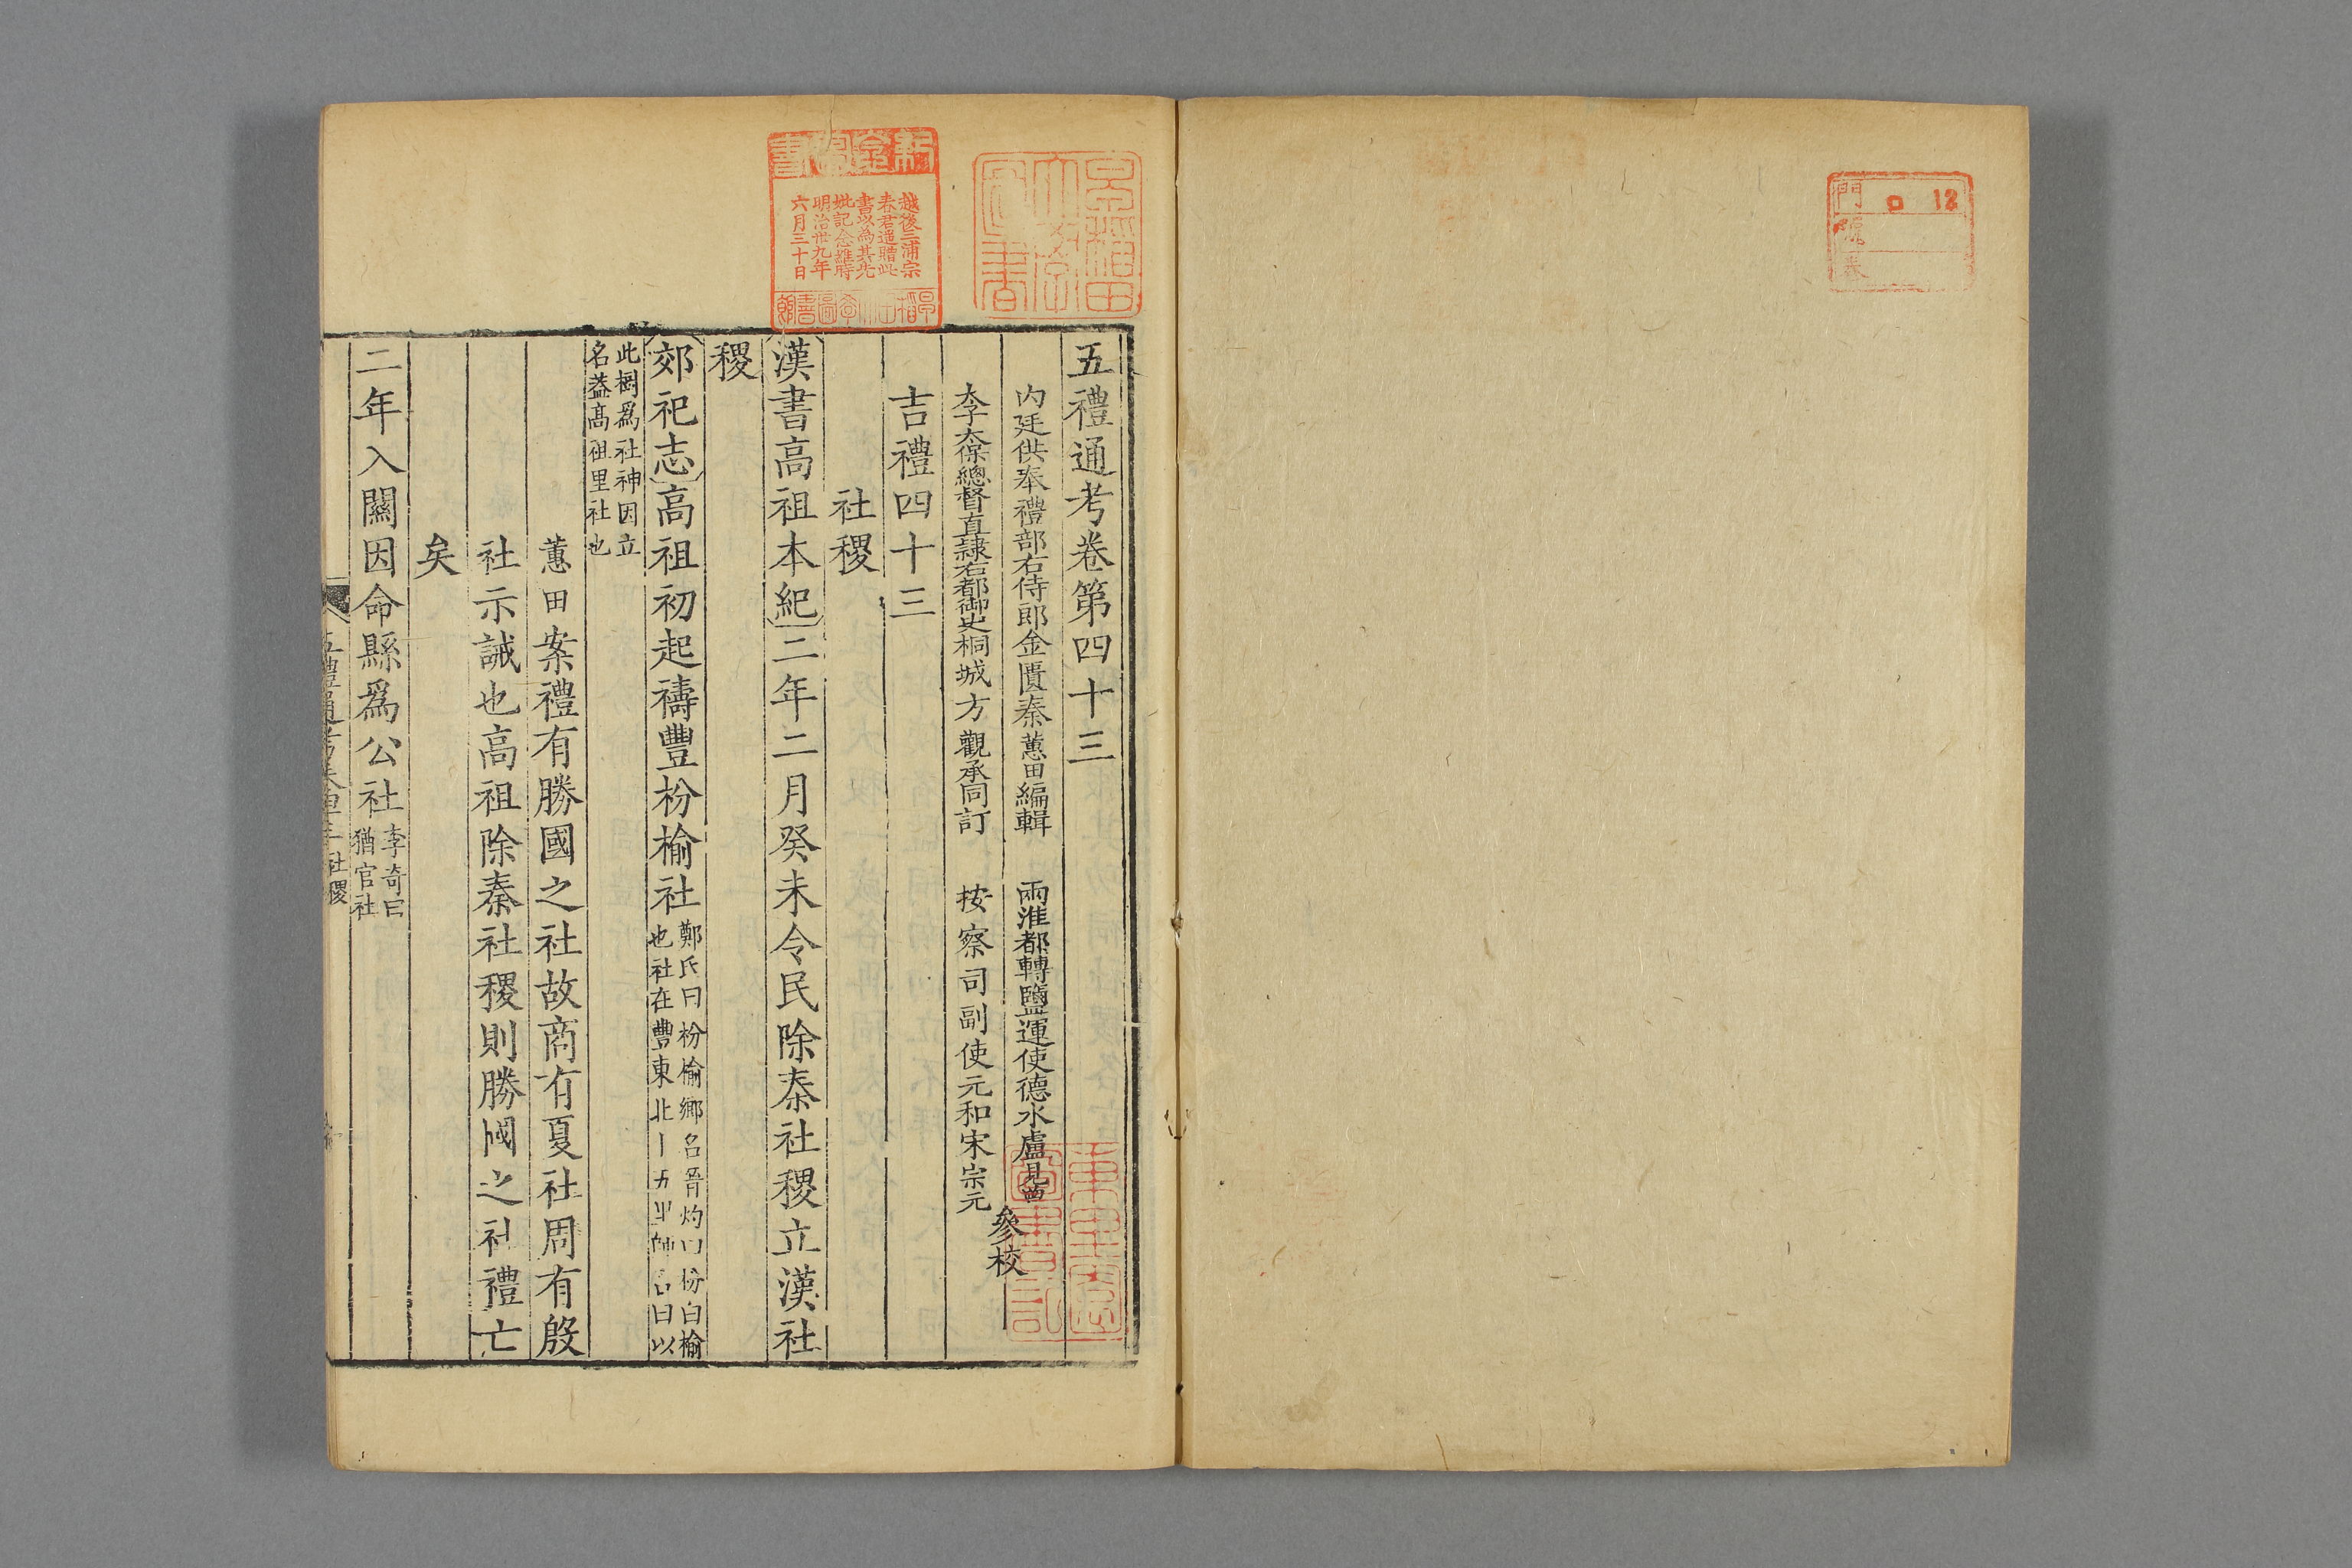 門
口 12
號
卷
五禮通考卷第四十三
内廷供奉禮部右侍郎金匱秦蕙田編輯 兩淮都轉鹽運使德水盧見曾
太子太保總督直隷右都御史桐城方觀承同訂 按察司副使元和宋宗元
參校
吉禮四十三
社稷
漢書高祖本紀二年二月癸未令民除秦社稷立漢社
稷
郊祀志高祖初起禱豐枌榆社
鄭氏曰枌榆鄉名晉灼曰枌白榆
也社在豐東北
曰以
此樹爲社神因立
名葢髙祖里社也
蕙田案禮有勝國之社故商有夏社周有殷
社示誡也高祖除秦社稷則勝國之社禮亡
矣
二年入關因命縣爲公社
李奇曰
猶官社
五禮通考卷四十三 社稷
越後三浦宗
春君遺贈此
書以為其先
妣記念維時
明治卅九年
六月三十日
早稻田大學圖書館